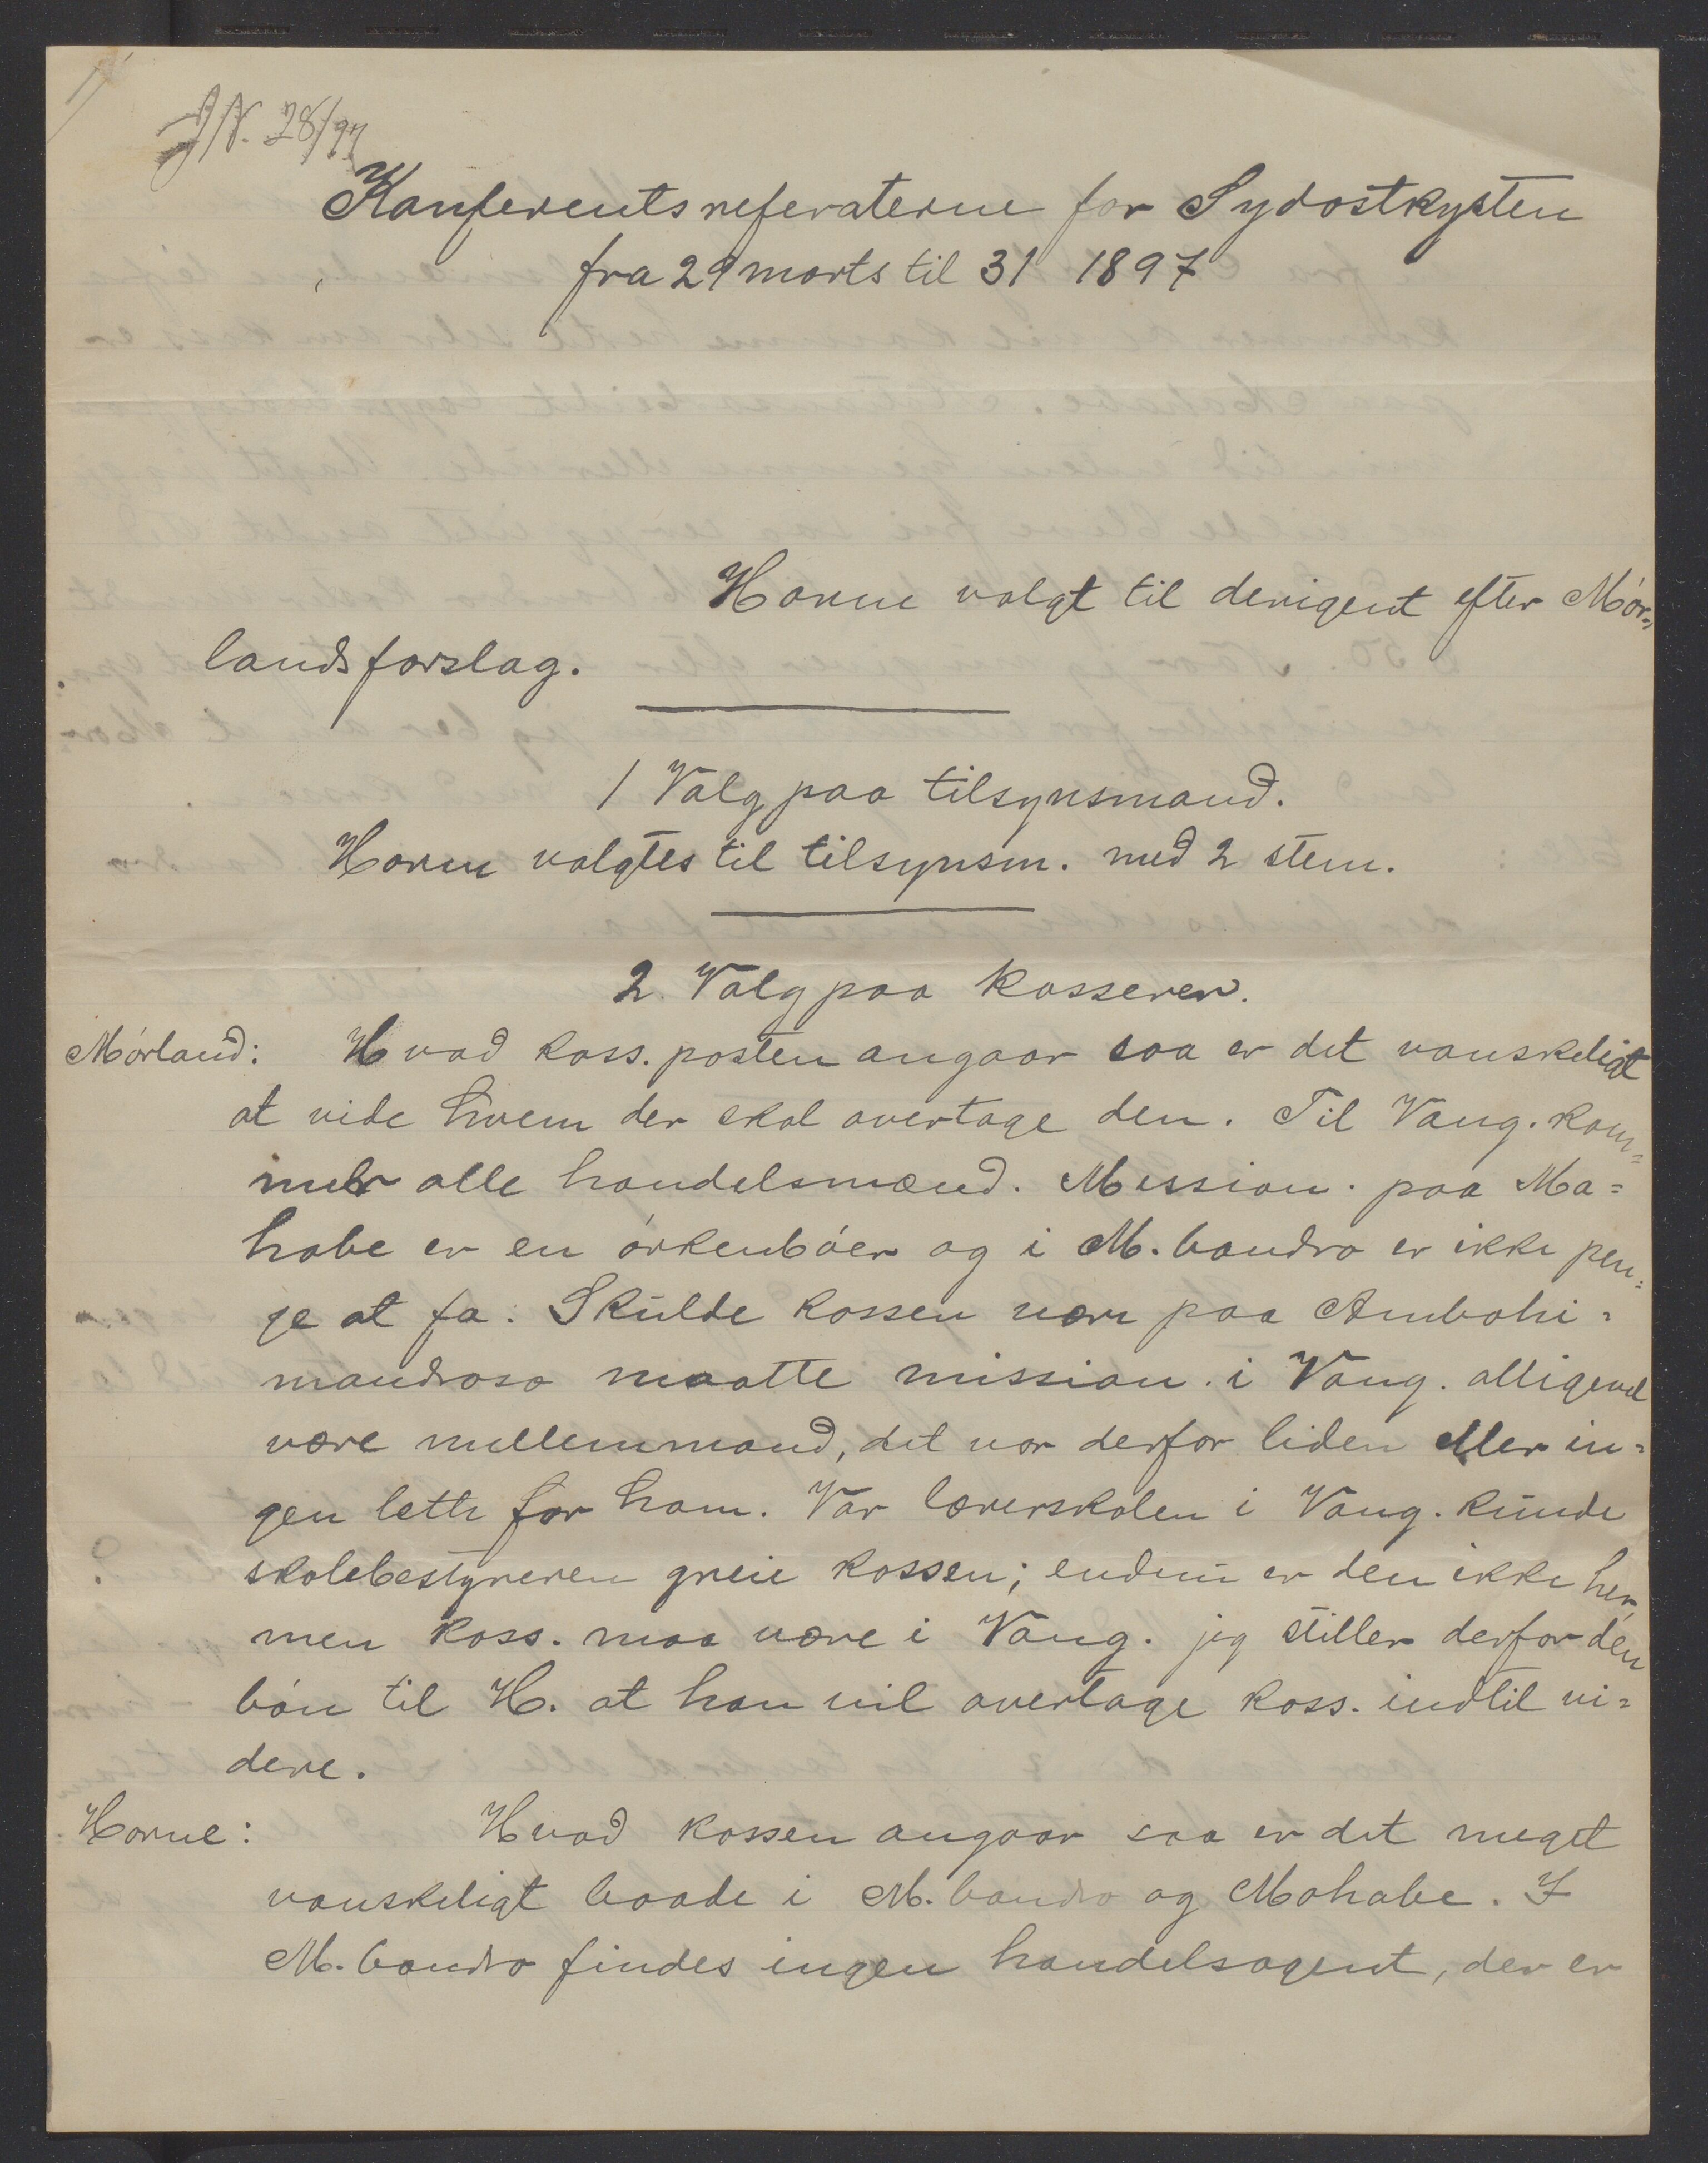 JN. 28/97
Konferentsreferaterne for Sydostkysten
fra 29 marts til 31 1897
Horne valgt til derigent efter Mór-
lands forslag.
1 Valg paa tilsynsmand.
Horne valgtes til tilsynsm. med 2 stem.
2. Valg paa kasserer.
Mórland: Hvad kass. posten angaar saa er det vanskeligt
at vide hvem der skal overtage den. Til Vang. kom=
mer alle handelsmænd. Mission. paa Ma=
habe er en órkenbóer og i M.bandro er ikke pen=
ge at fa. Skulde kassen være paa Ambohi=
mandroso maatte mission. i Vang. alligevel
være mellemmand, det var derfor liden eller in=
gen lette for ham. Var lærerskolen i Vang. kunde
skolebestyreren greie kassen; endnu er den ikke her,
men kass. maa være i Vang. jeg stiller derfor den
bón til H. at han vil overtage kass. indtil vi=
dere.
Horne: Hvad kassen angaar saa er det meget
vanskeligt baade i M.bandro og Mahabe. I
M.bandro findes ingen handelsagent, der er